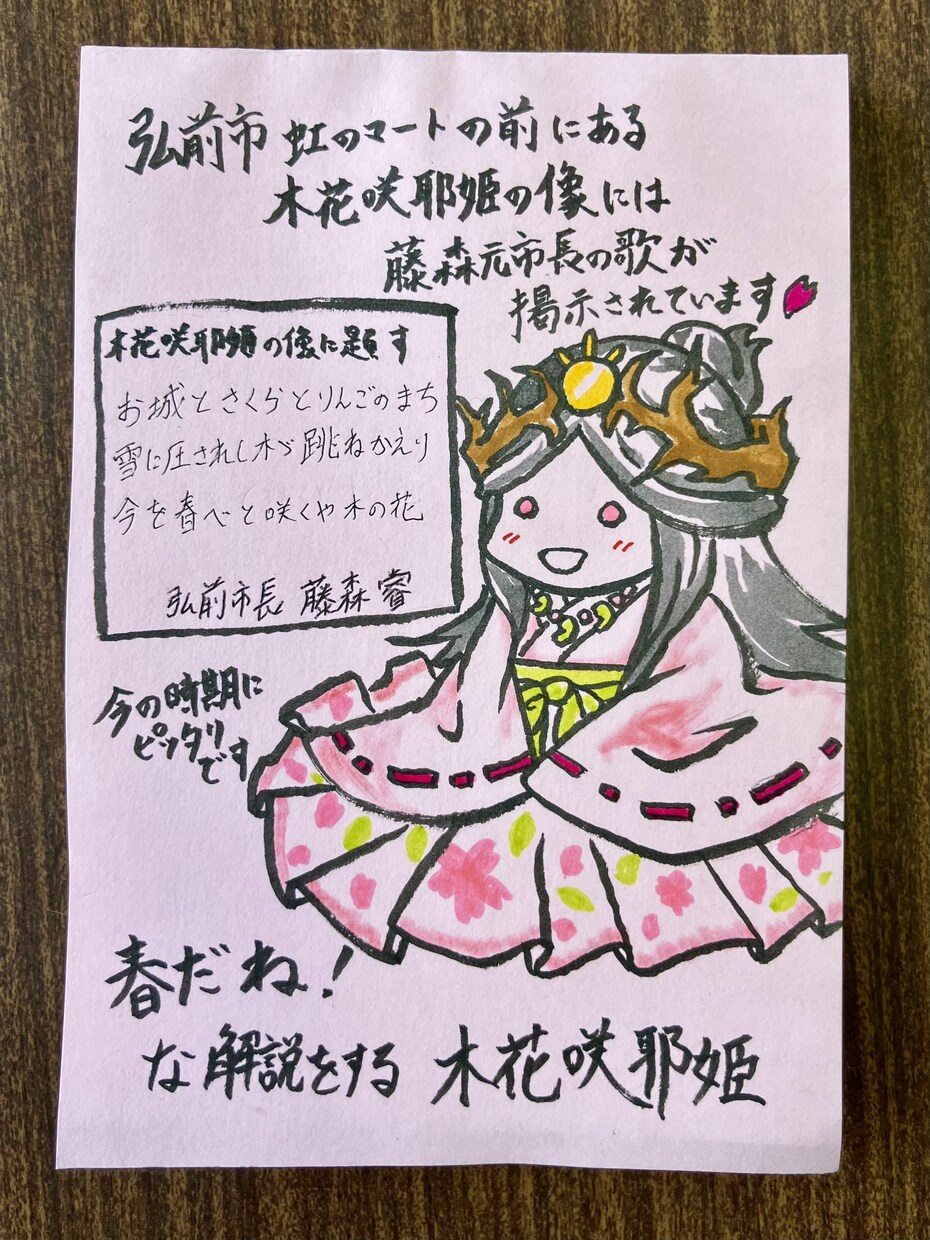 弘前市 虹のマートの前にある
木花咲耶姫の像には
藤森元市長の歌が
掲示されています
木花咲耶姫の像に題す
お城とさくらとりんごのまち
雪に圧されし木が跳ねかえり
今を春べと咲くや木の花
弘前市長 藤森睿
今の時期に
ピッタリ
です
春だね!
な解説をする 木花咲耶姫